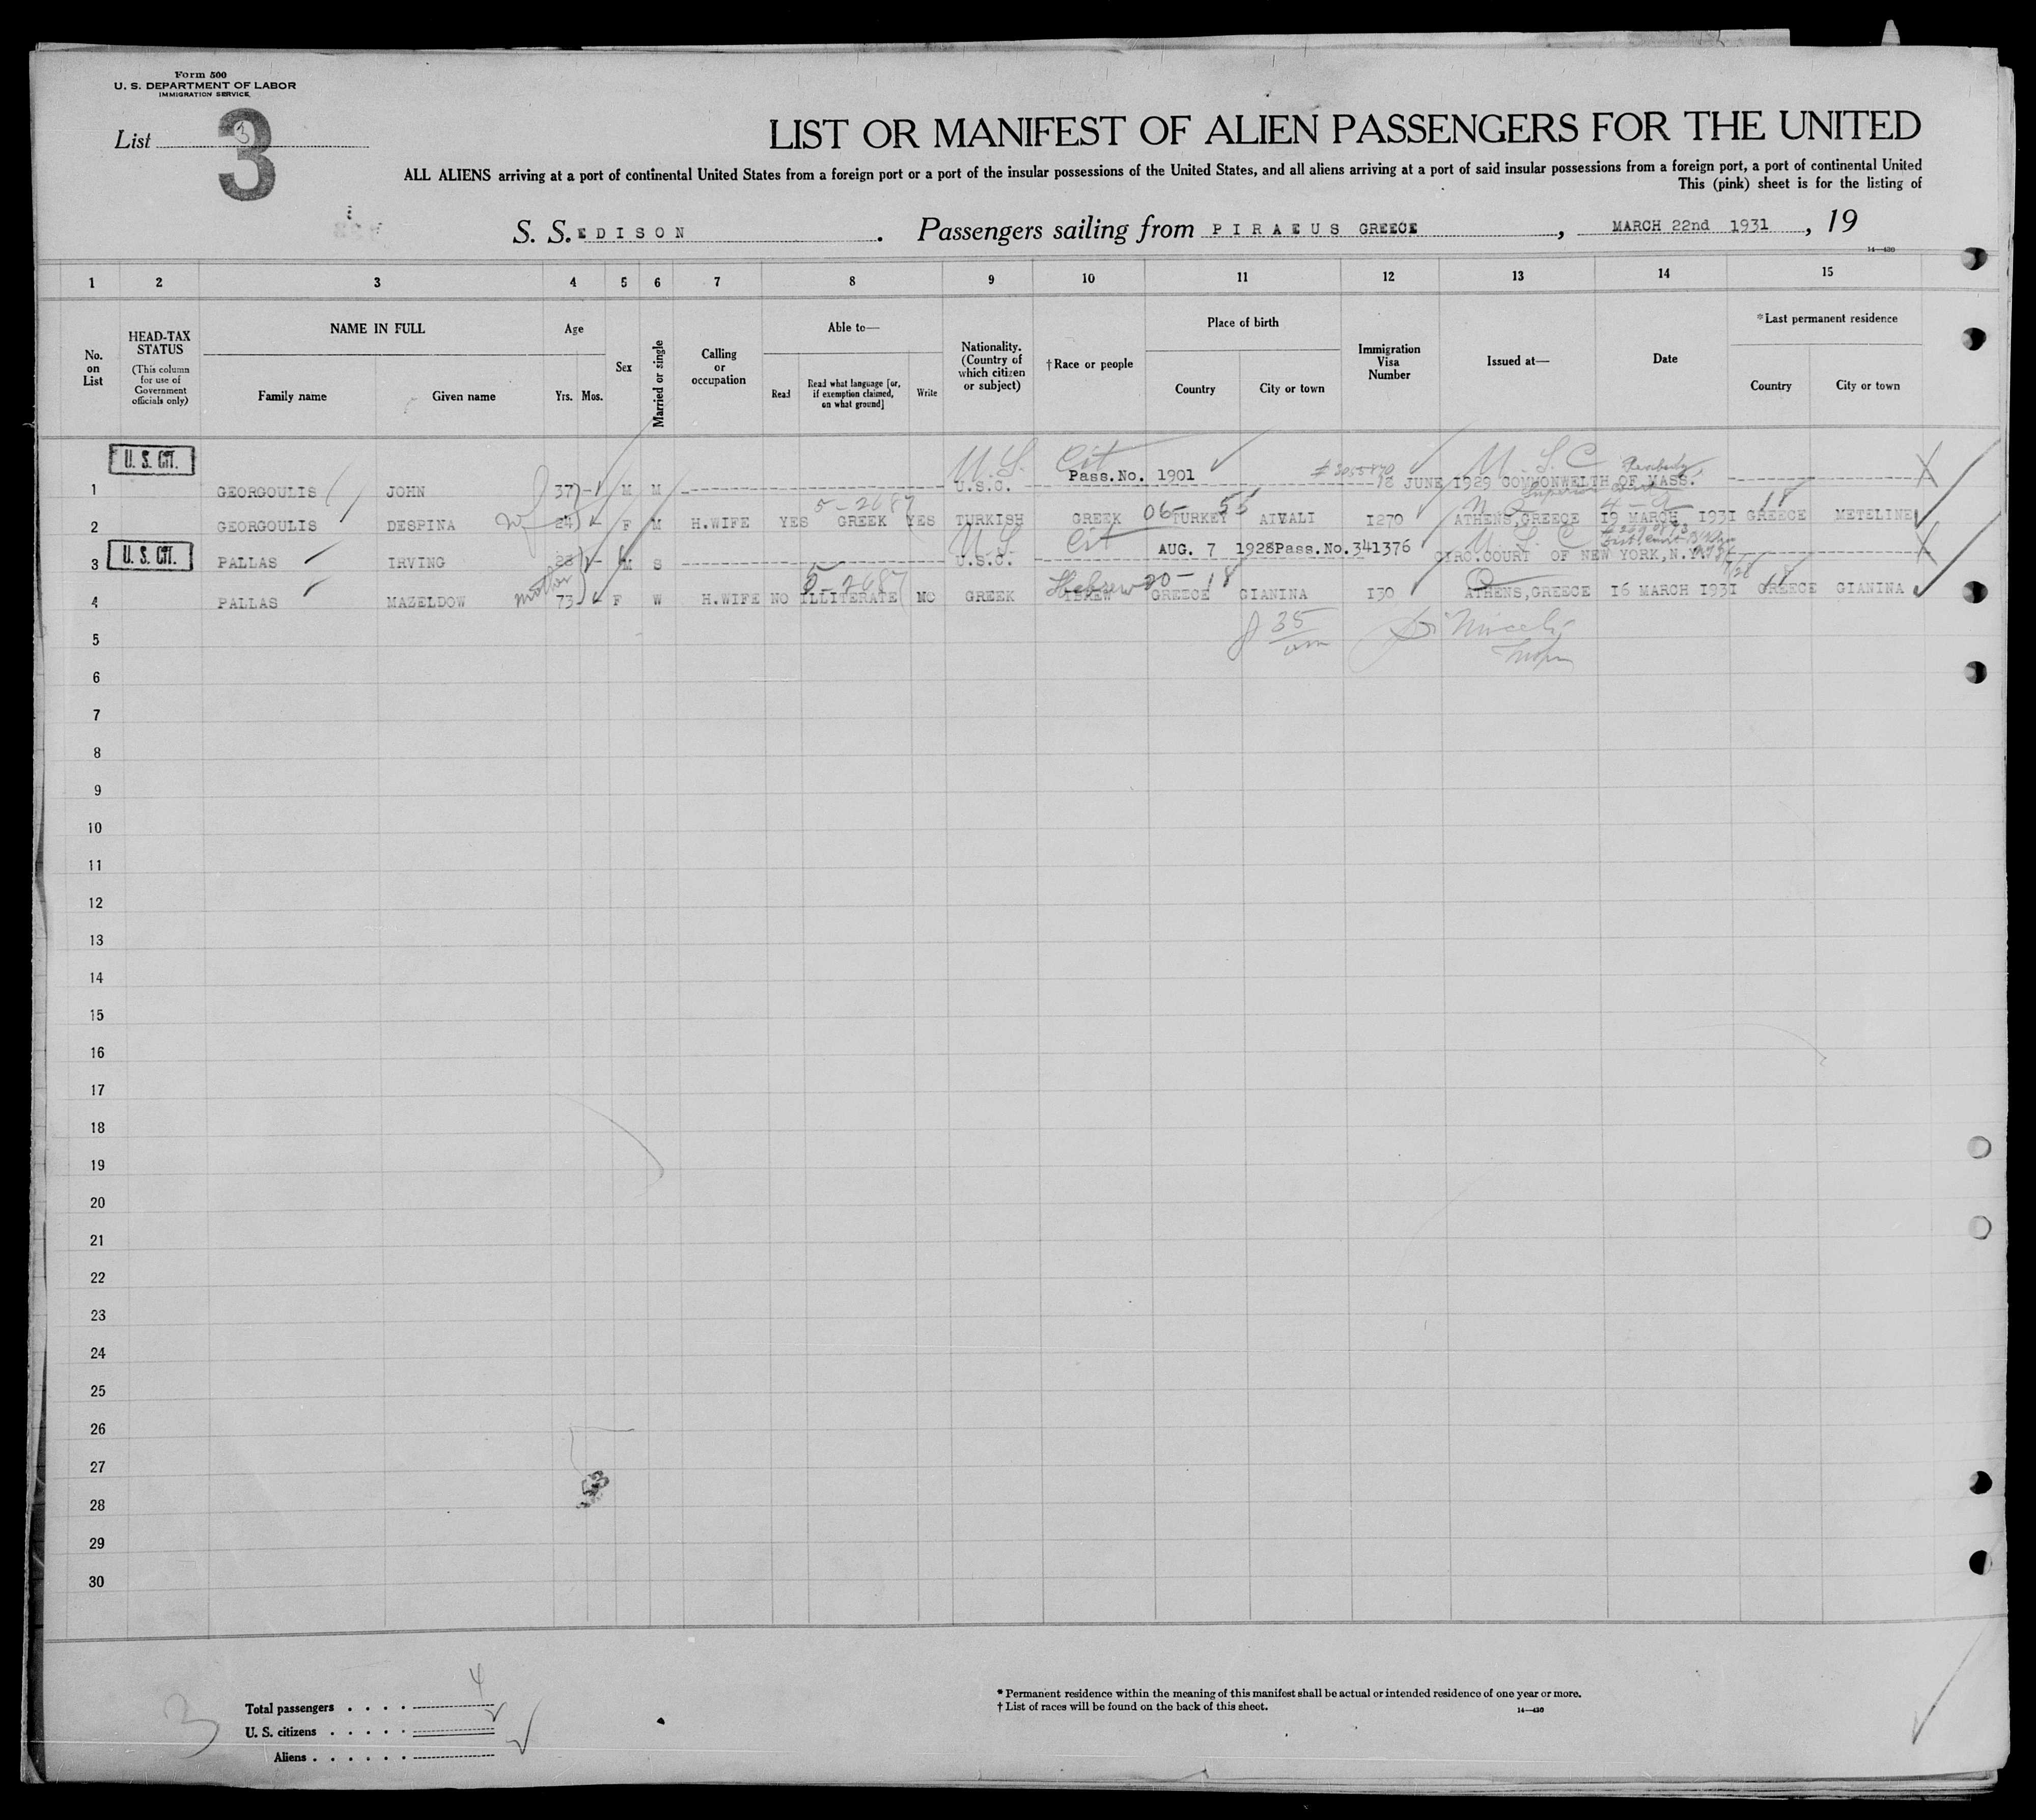 Form 500
U. S. DEPARTMENT OF LABOR
IMMIGRATION SERVICE
List 3
3
LIST OR MANIFEST OF ALIEN PASSENGERS FOR THE UNITED
ALL ALIENS arriving at a port of continental United States from a foreign port or a port of the insular possessions of the United States, and all aliens arriving at a port of said insular possessions from a foreign port, a port of continental United
This (pink) sheet is for the listing of
S. S. EDISON. Passengers sailing from PIRAEUS GREECE, MARCH 22nd 1931, 19
14—430
1 2 3 4 5 6 7 8 9 10 11 12 13 14 15
No. on List
HEAD-TAX STATUS
(This column for use of Government officials only)
NAME IN FULL
Family name Given name
Age
Yrs. Mos.
Sex
Married or single
Calling or occupation
Able to—
Read
Read what language [or, if exemption claimed, on what ground]
Write
Nationality. (Country of which citizen or subject)
†Race or people
Place of birth
Country City or town
Immigration Visa Number
Issued at—
Date
*Last permanent residence
Country City or town
U. S. CIT.
U. S. Cit U. S. C Peabody
Pass.No. 1901
1 GEORGOULIS JOHN 37 M M U.S.C. 18 JUNE 1929 COMONWELTH OF MASS.
5-2687 06- 55 Superior Court 18
2 GEORGOULIS DESPINA 24 F M H.WIFE YES GREEK YES TURKISH GREEK TURKEY AIVALI I270 ATHENS,GREECE 19 MARCH 193I GREECE METELINE
U. S. CIT.
U. S. Cit U. S. C
AUG. 7 1928 Pass.No. 341376
3 PALLAS IRVING 28 M S U.S.C. CIRC.COURT OF NEW YORK,N.Y.
mother 5-2687 Hebrew 20-18 18
4 PALLAS MAZELDOW 73 F W H.WIFE NO ILLITERATE NO GREEK GREECE GIANINA I30 ATHENS,GREECE I6 MARCH 193I GREECE GIANINA
35
5
6
7
8
9
10
11
12
13
14
15
16
17
18
19
20
21
22
23
24
25
26
27
28
29
30
3
Total passengers . . . . 4
U. S. citizens . . . . . 2
Aliens . . . . . .
* Permanent residence within the meaning of this manifest shall be actual or intended residence of one year or more.
† List of races will be found on the back of this sheet.
14—430